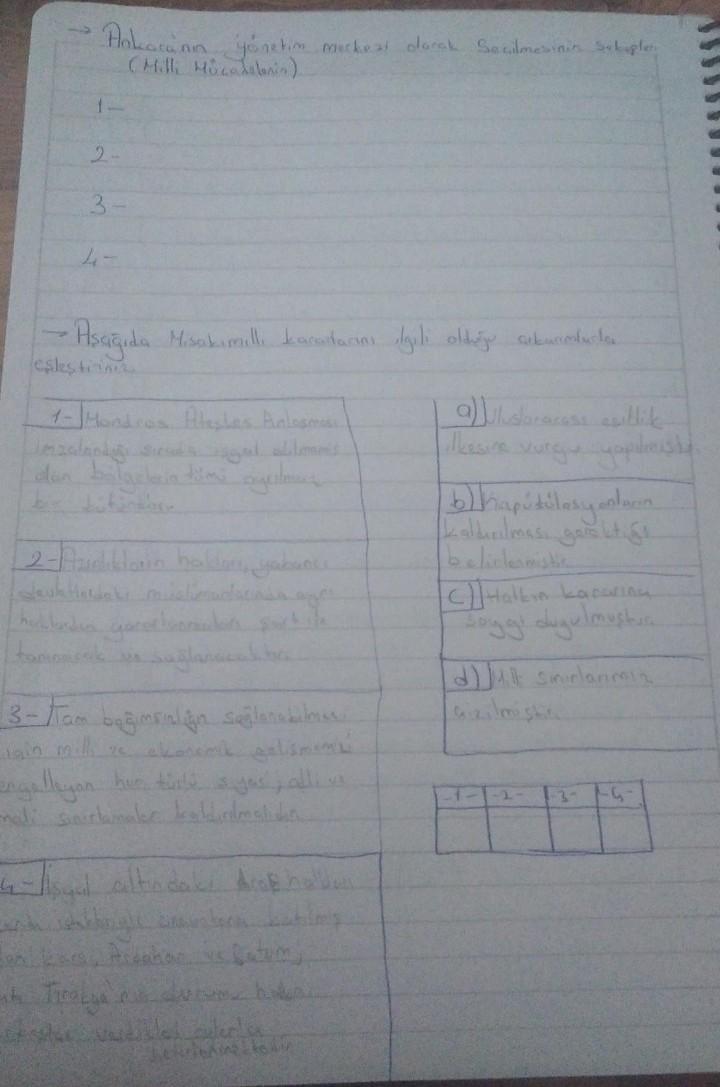 → Ankara'nın yönetim merkezi olarak Seçilmesinin Sebepleri
(Milli Mücadelenin)
1-
2-
3-
4-
→ Aşağıda Misakımilli kararlarını ilgili olduğu çıkarımlarla
eşleştiriniz
1- Mondros Ateşkes Anlaşması
imzalandığı sırada işgal edilmemiş
olan bölgelerin tümü ayrılmaz
bir bütündür.
2- Azınlıkların hakları, yabancı
devletlerdeki müslümanlarında aynı
haklardan yararlanmaları şartı ile
tanınacak ve sağlanacaktır.
3- Tam bağımsızlığın sağlanabilmesi
için milli ve ekonomik gelişmemizi
engelleyen her türlü siyasi, adli ve
mali sınırlamalar kaldırılmalıdır.
4- İşgal altındaki Arap halkları
kendi istekleriyle anavatana katılmış
olan Kars, Ardahan ve Batum,
Batı Trakya'nın durumu halkın
serbestçe verdikleri oylarla
belirlenmektedir
a) Uluslararası eşitlik
ilkesine vurgu yapılmıştır.
b) Kapütülasyonların
kaldırılması gerektiği
belirlenmiştir
c) Halkın kararına
saygı duyulmuştur.
d) Milli sınırlarımız
çizilmiştir.
-1- -2- -3- -4-